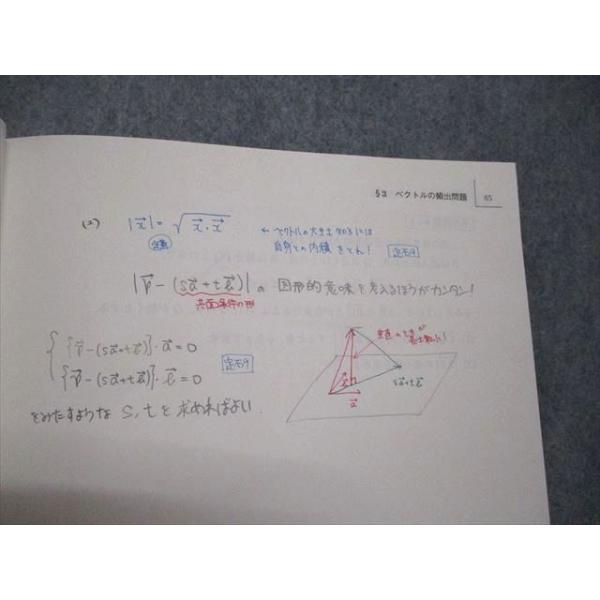 §3 ベクトルの頻出問題 65
(2) |x⃗| = √x⃗・x⃗
定義
← ベクトルの大きさ 知るには
自身との内積をとれ!
定石9
|p⃗ − (sa⃗ + tb⃗)| の 図形的意味を考えるほうがカンタン!
共面条件の形
{p⃗ − (sa⃗ + tb⃗)}・a⃗ = 0
{p⃗ − (sa⃗ + tb⃗)}・b⃗ = 0
定石9
をみたすような s, t を求めればよい.
垂直のときが
sa⃗ + tb⃗
b⃗
a⃗